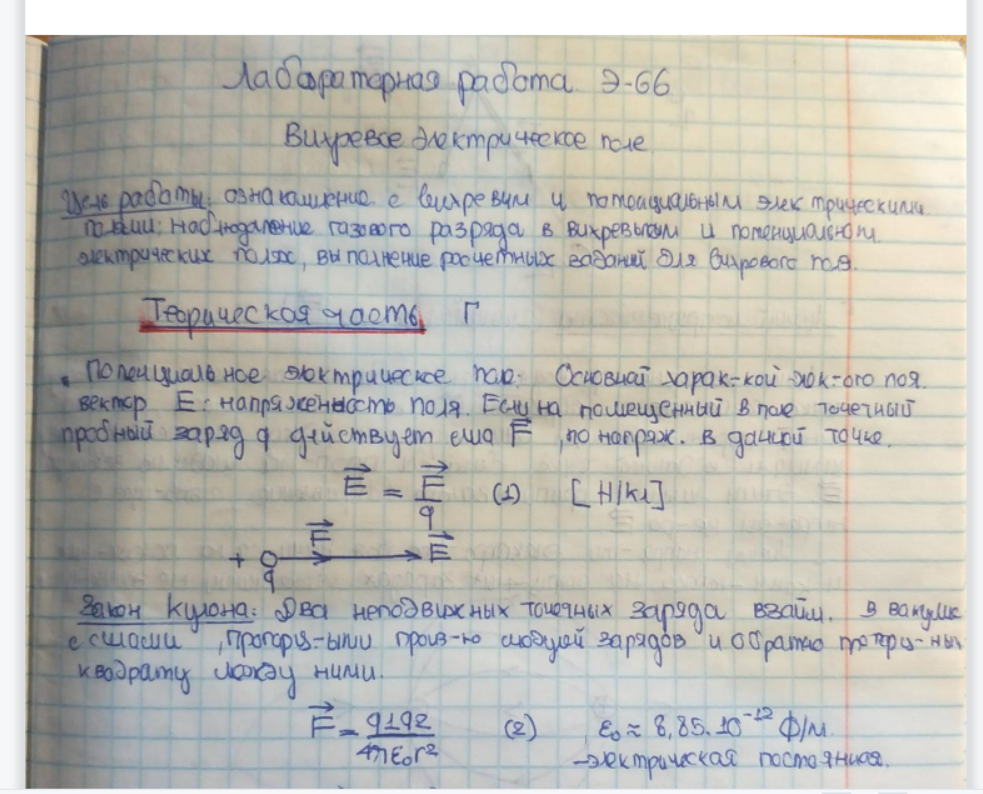 Лаборатерная работа Э-66
Вихревое электрическое поле
Цель работы: ознакомление с вихревым и потенциальным электрическими
полями; наблюдение газового разряда в вихревыном и потенциальном
электрических полях, выполнение расчетных заданий для вихрового поля.
Теорическая часть Г
Потенциальное электрическое поле: Основной харак-кой эл-ого поя.
вектор E: напряженность поля. Если на помещенный в поле точечный
пробный заряд q действует сила F, по напряж. в данной точке.
E = F/q (1) [Н/кл]
F
+ q E
Закон Кулона: Два неподвижных точечных заряда взаим. в вакууме
с силами, пропорц-ыми произ-ю зарядов и обратно пропорц-ных
квадрату между ними.
F = q1q2/4πε₀r² (2) ε₀ ≈ 8,85·10⁻¹² Ф/м
-электрическая постоянная.